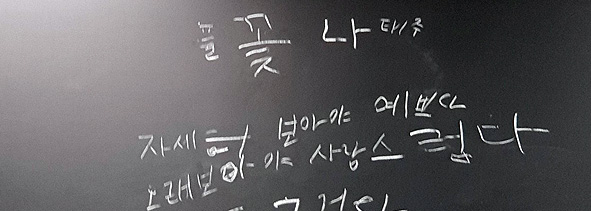 풀꽃 나태주
자세히 보아야 예쁘다
오래보아야 사랑스럽다